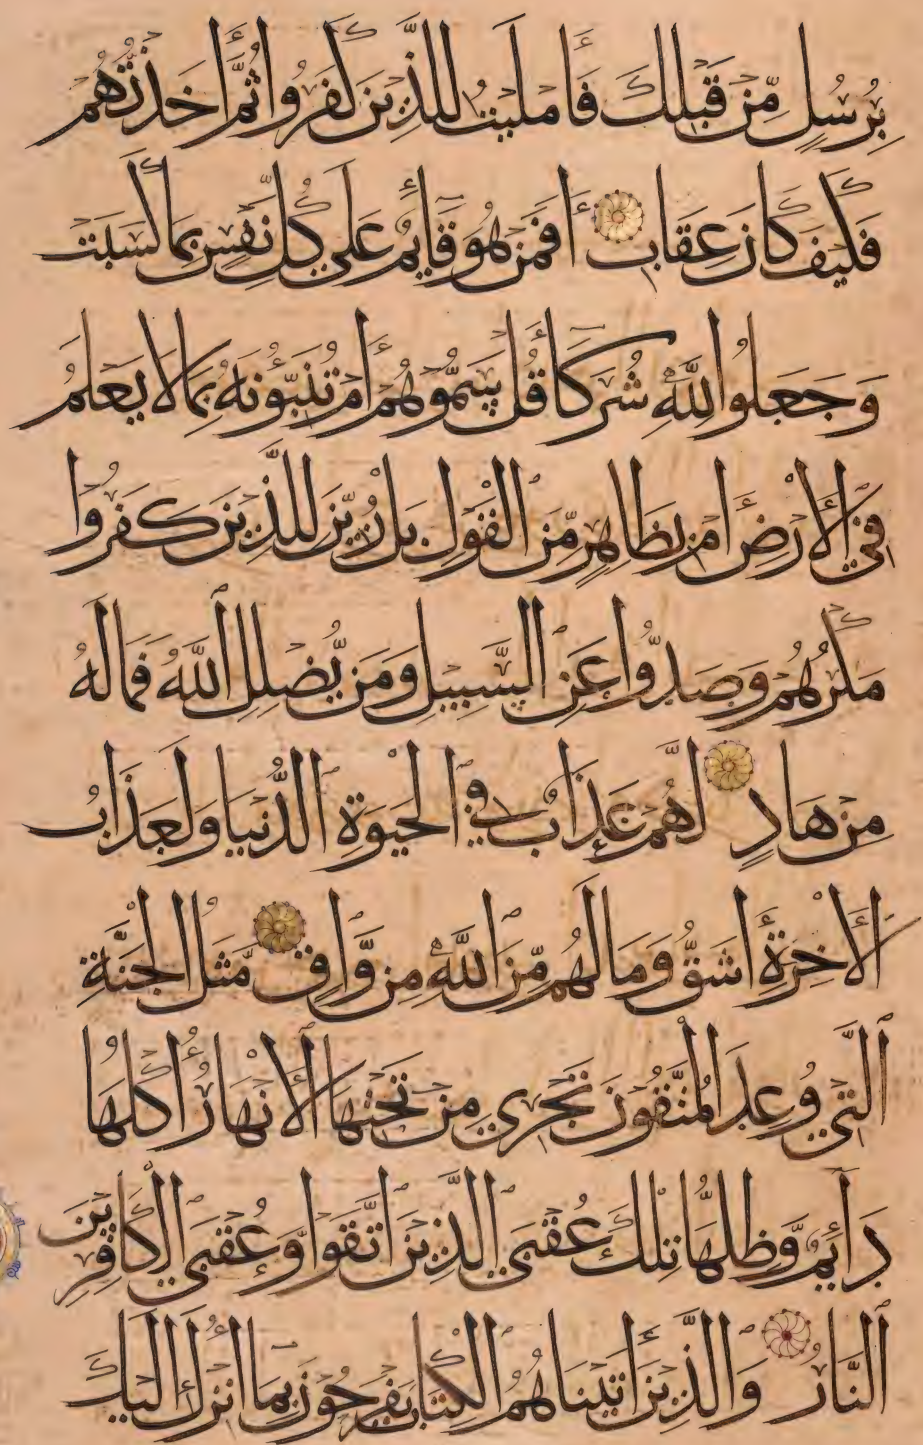 بِرُسُلٍ مِّنْ قَبْلِكَ فَأَمْلَيْتُ لِلَّذِينَ كَفَرُوا ثُمَّ أَخَذْتُهُمْ
فَكَيْفَ كَانَ عِقَابِ أَفَمَنْ هُوَ قَايِمٌ عَلَى كُلِّ نَفْسٍ بِمَا كَسَبَتْ
وَجَعَلُوا لِلَّهِ شُرَكَاءَ قُلْ سَمُّوهُمْ أَمْ تُنَبِّؤُنَهُ بِمَا لَا يَعْلَمُ
فِي الْأَرْضِ أَمْ بِظَاهِرٍ مِّنَ الْقَوْلِ بَلْ زُيِّنَ لِلَّذِينَ كَفَرُوا
مَكْرُهُمْ وَصَدُّوا عَنِ السَّبِيلِ وَمَنْ يُّضْلِلِ اللَّهُ فَمَا لَهُ
مِنْ هَادٍ لَهُمْ عَذَابٌ فِي الْحَيٰوةِ الدُّنْيَا وَلَعَذَابُ
الْأَخِرَةِ أَشَقُّ وَمَا لَهُمْ مِّنَ اللَّهِ مِنْ وَّاقٍ مَّثَلُ الْجَنَّةِ
الَّتِي وُعِدَ الْمُتَّقُونَ تَجْرِي مِنْ تَحْتِهَا الْأَنْهَارُ أُكُلُهَا
دَايِمٌ وَّظِلُّهَا تِلْكَ عُقْبَى الَّذِينَ اتَّقَوا وَّعُقْبَى الْكَافِرِينَ
النَّارُ وَالَّذِينَ أٰتَيْنَاهُمُ الْكِتَابَ يَفْرَحُونَ بِمَا أُنْزِلَ إِلَيْكَ